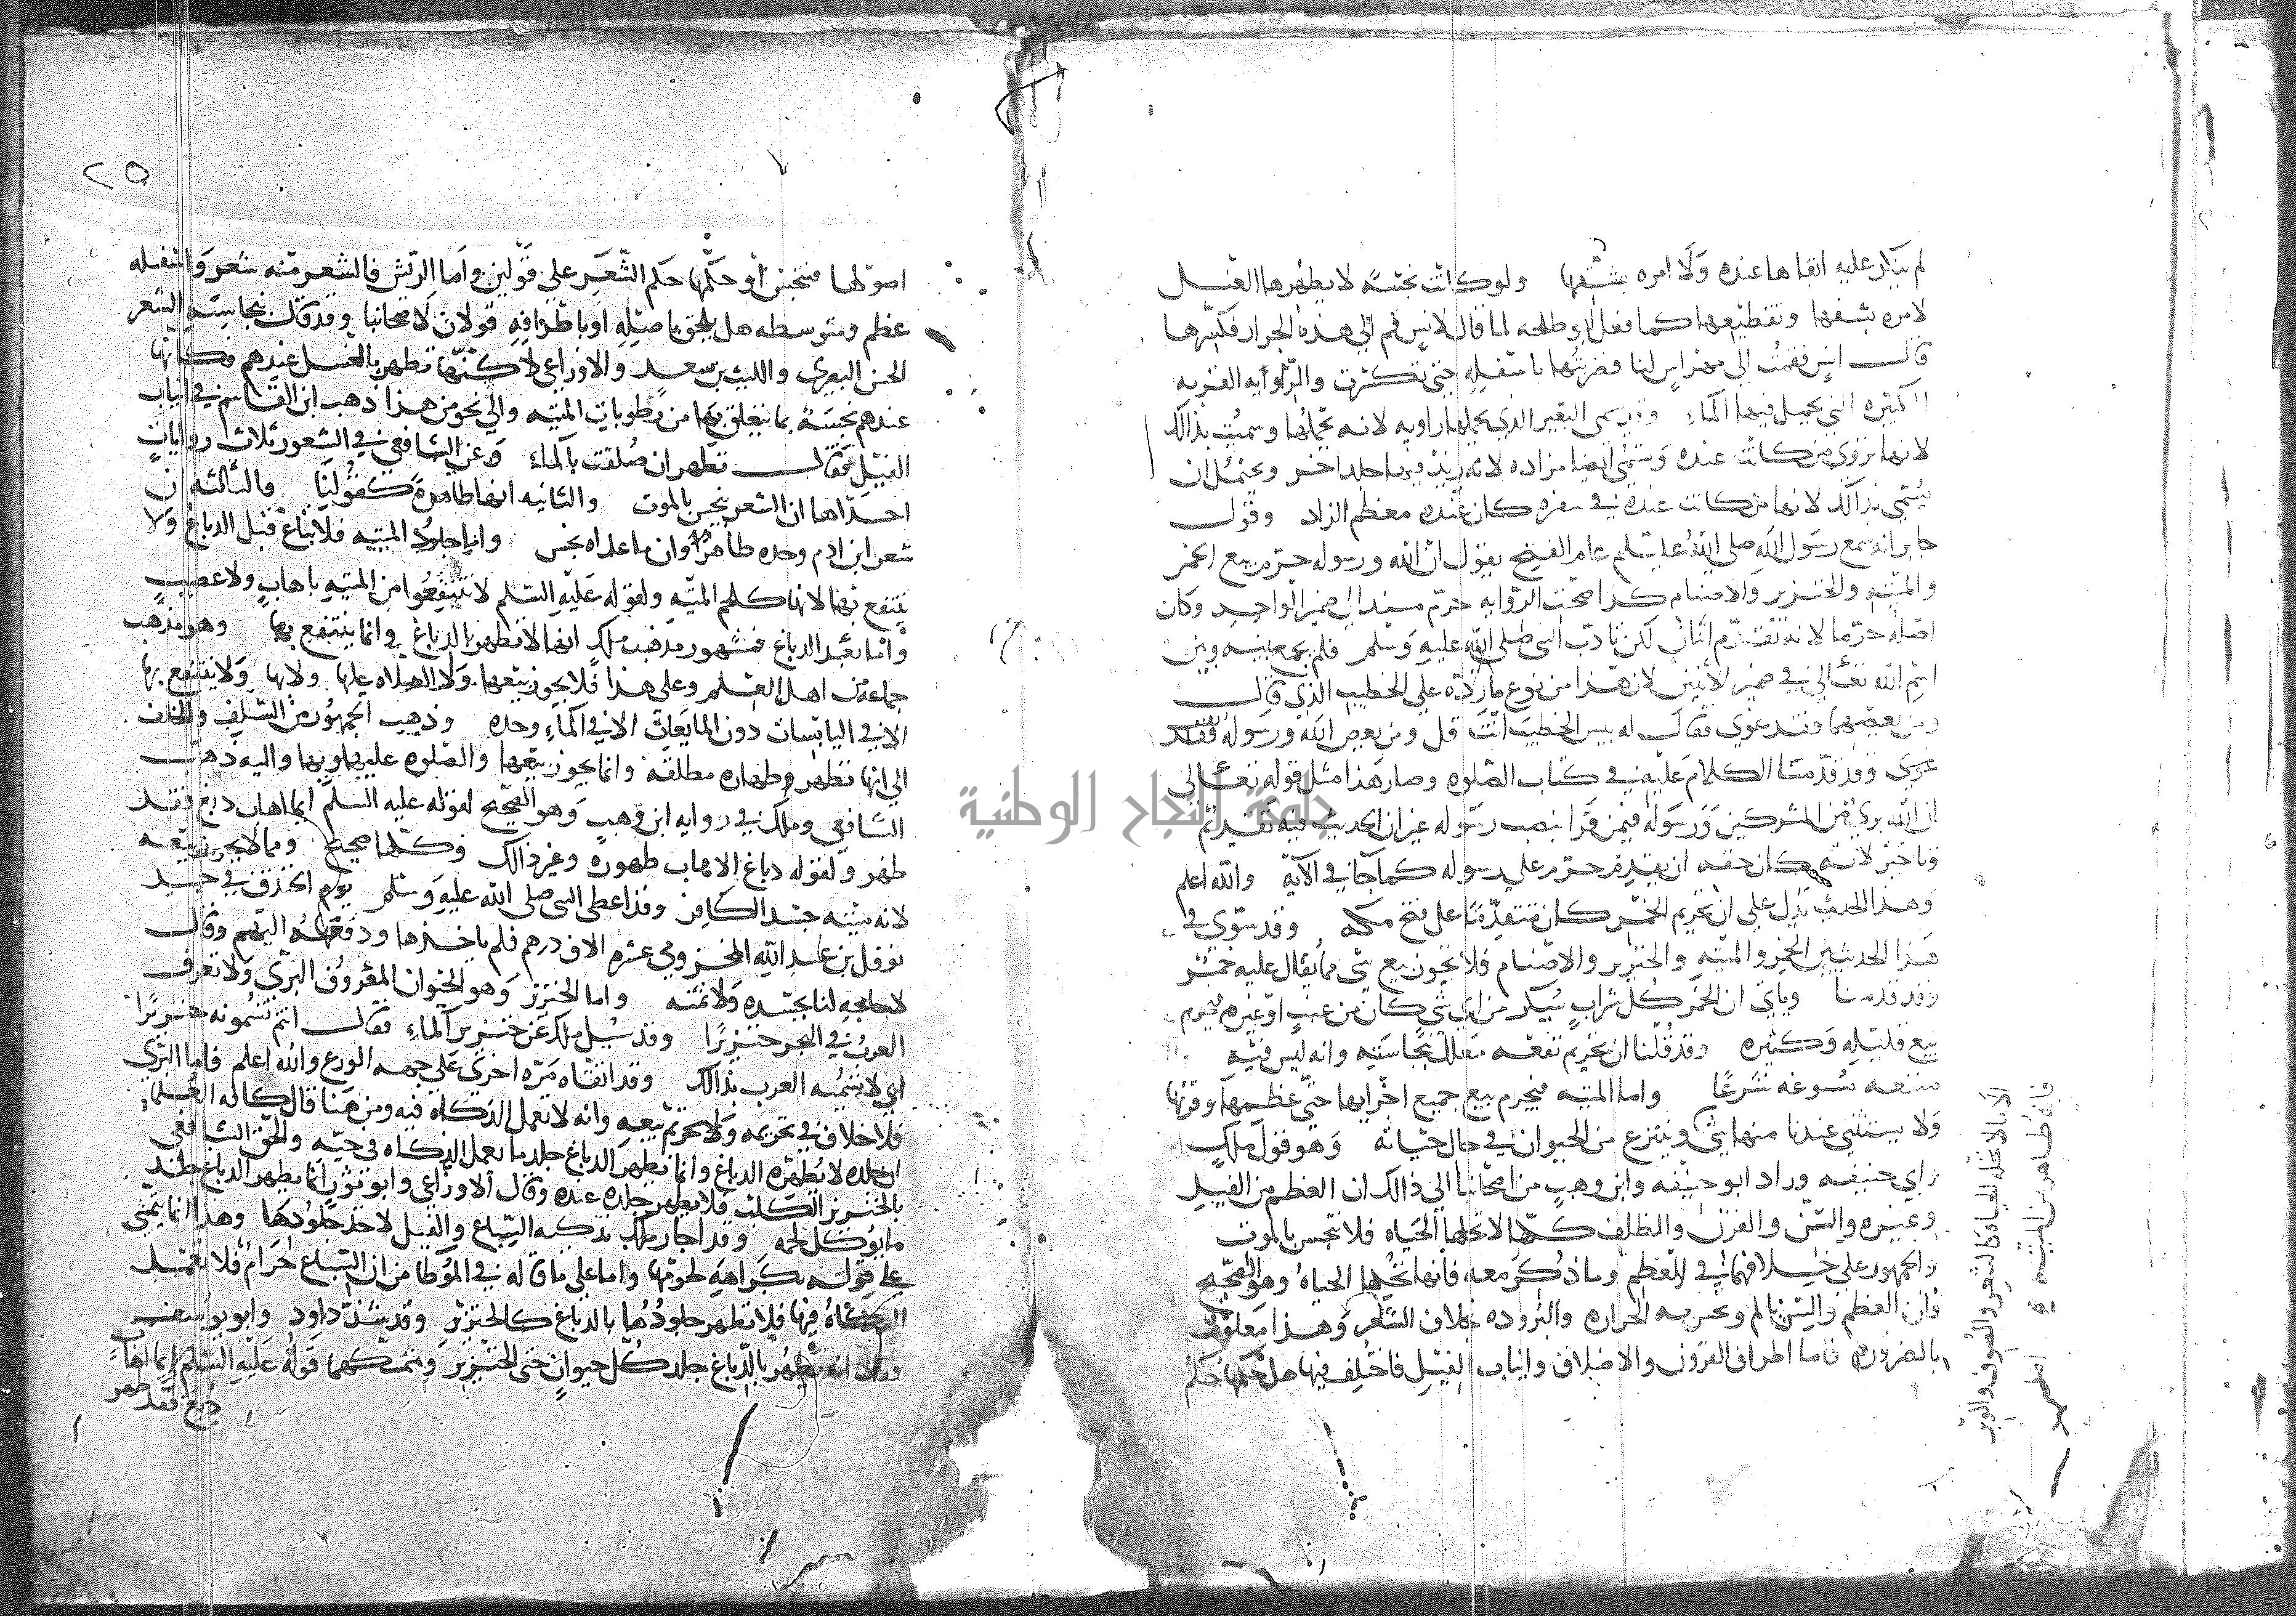 لم ينكر عليه ابقاها عنده ولا امره بشقها ولو كانت نجسة لا يطهرها الغسل
لامره بشقها وتقطيعها كما فعل ابو طلحه لما قال لانس قم الى هذه الجرار فكسرها
قال انس فقمت الى مهراس لنا فضربتها باسفله حتى تكسرت والراويه القربه
الكبيره التي يحمل فيها الماء وقد يسمى البعير الذي يحملها راويه لانه يحملها وسميت بذالك
لانها تروي من كانت عنده وتسمى ايضا مزاده لانه زيد فيها جلد اخر ويحتمل ان
تسمى بذالك لانها من كانت عنده في سفره كان عنده معظم الزاد وقول
جابر انه سمع رسول الله صلى الله عليه وسلم عام الفتح يقول ان الله ورسوله حرم بيع الخمر
والميته والخنزير والاصنام كذا صحت الروايه حرم مسندا الى ضمير الواحد وكان
اصله حرما لانه تقدم اثنان لكن تادب النبي صلى الله عليه وسلم فلم يجمع بينه وبين
اسم الله تعالى في ضمير لاثنين لان هذا من نوع ما رده على الخطيب الذي قال
ومن يعصهما فقد غوى فقال له بيس الخطيب انت قل ومن يعص الله ورسوله فقد
غوى وقد قدمنا الكلام عليه في كتاب الصلوه وصار هذا مثل قوله تعالى
ان الله بري من المشركين ورسوله فيمن قرا بنصب رسوله غير ان الحديث فيه تقديم
وتاخير لانه كان حقه ان يقدم حرم على رسوله كما جا في الآية والله اعلم
وهذا الحديث يدل على ان تحريم الخمر كان متقدما على فتح مكه وقد سوى في
هذا الحديث بين الخمر والميته والخنزير والاصنام فلا يجوز بيع شي مما يقال عليه خمر
وقد قدمنا وياتي ان الخمر كل شراب يسكر من اي شي كان من عنب او غيره فيحرم
بيع قليله وكثيره وقد قلنا ان تحريم نفعه معلل بنجاسته وانه ليس فيه
منفعه مسوغه شرعا واما الميته فيحرم بيع جميع اجزايها حتى عظمها وقرنها
ولا يستثنى عندنا منها شي وينتزع من الحيوان في حال حياته وهو قول ملك
واي حنيفه وزاد ابو حنيفه وابن وهب من اصحابنا الى ذالك ان العظم من الفيل
وغيره والسن والقرن والظلف كلها لا تحلها الحياه فلا تنجس بالموت
والجمهور على خلافهما في العظم وما ذكر معه فانها تحلها الحياه وهو الصحيح
فان العظم والسن يالم ويحس به الحراره والبروده بخلاف الشعر وهذا معلوم
بالضروره فاما اطراف القرون والاظلاف وانياب الفيل فاختلف فيها هل حكمها حكم
الا ما لا تحله الحياه كالشعر والصوف والوبر
فانه طاهر من الميته
اصولها فتنجس او حكمها حكم الشعر على قولين واما الريش فالشعر منه شعر واسفله
عظم ومتوسطه هل يلحق باصله او باطرافه قولان لاصحابنا وقد قال بنجاسة الشعر
الحسن البصري والليث بن سعد والاوزاعي لاكنها تطهر بالغسل عندهم فكانها
عندهم نجسة بما يتعلق بها من رطوبات الميته والى نحو من هذا ذهب ابن القاسم في انياب
الفيل فقال تطهر ان صلقت بالماء وعن الشافعي في الشعور ثلاث روايات
احداها ان الشعر ينجس بالموت والثانيه انها طاهرة كقولنا والثالثه ان
شعر ابن ادم وحده طاهر وان ما عداه نجس واما جلود الميته فلا تباع قبل الدباغ ولا
ينتفع بها لانها كلحم الميته ولقوله عليه السلم لا تنتفعوا من الميته باهاب ولا عصب
واما بعد الدباغ فمشهور مذهب ملك انها لا تطهر بالدباغ وانما ينتفع بها وهو مذهب
جماعة من اهل العلم وعلى هذا فلا يجوز بيعها ولا الصلاه عليها ولا بها ولا ينتفع بها
الا في اليابسات دون المايعات الا في الماء وحده وذهب الجمهور من السلف والخلف
الى انها تطهر وطهاره مطلقة وانما يجوز بيعها والصلوه عليها وبها واليه ذهب
الشافعي وملك في روايه ابن وهب وهو الصحيح لقوله عليه السلم ايما اهاب دبغ فقد
طهر ولقوله دباغ الاهاب طهوره وغير ذالك وكلها صحيح ومما لا يجوز بيعه
لانه ميته جسد الكافر وقد اعطى النبي صلى الله عليه وسلم يوم الخندق في جسد
نوفل بن عبد الله المخزومي عشره الاف درهم فلم ياخذها ودفعه اليهم وقال
لا حاجه لنا بجسده ولا ثمنه واما الخنزير وهو الحيوان المعروف البري ولا تعرف
العرب في البحر خنزيرا وقد سيل ملك عن خنزير الماء فقال انتم تسمونه خنزيرا
اي لا تسميه العرب بذالك وقد اتقاه مره اخرى على جهه الورع والله اعلم فاما البري
فلا خلاف في تحريمه ولا تحريم بيعه وانه لا تعمل الذكاه فيه ومن هنا قال كافه العلما
ان جلده لا يطهره الدباغ وانما يطهر الدباغ جلد ما تعمل الذكاه في حيه والحق الشافعي
بالخنزير الكلب فلا يطهر جلده عنده وقال الاوزاعي وابو ثور انما يطهر الدباغ جلد
ما يوكل لحمه وقد اجاز ملك تذكيه السباع والفيل لاخذ جلودها وهذا انما يتمشى
على قوله بكراهه لحومها واما على ما قاله في الموطا من ان السباع حرام فلا تعمل
الذكاة فيها فلا تطهر جلودها بالدباغ كالخنزير وقد شذ داود وابو يوسف
وقالا انه يطهر بالدباغ جلد كل حيوان حتى الخنزير ومتمسكهما قوله عليه السلم ايما اهاب
دبغ فقد طهر
٢٥
جامعة النجاح الوطنية